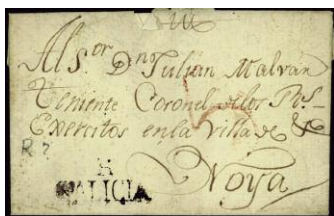 Al S.or D.n Julian Malvar
Teniente Coronel de los R.s
Exercitos en la Villa de
Noya
R ?
GALICIA